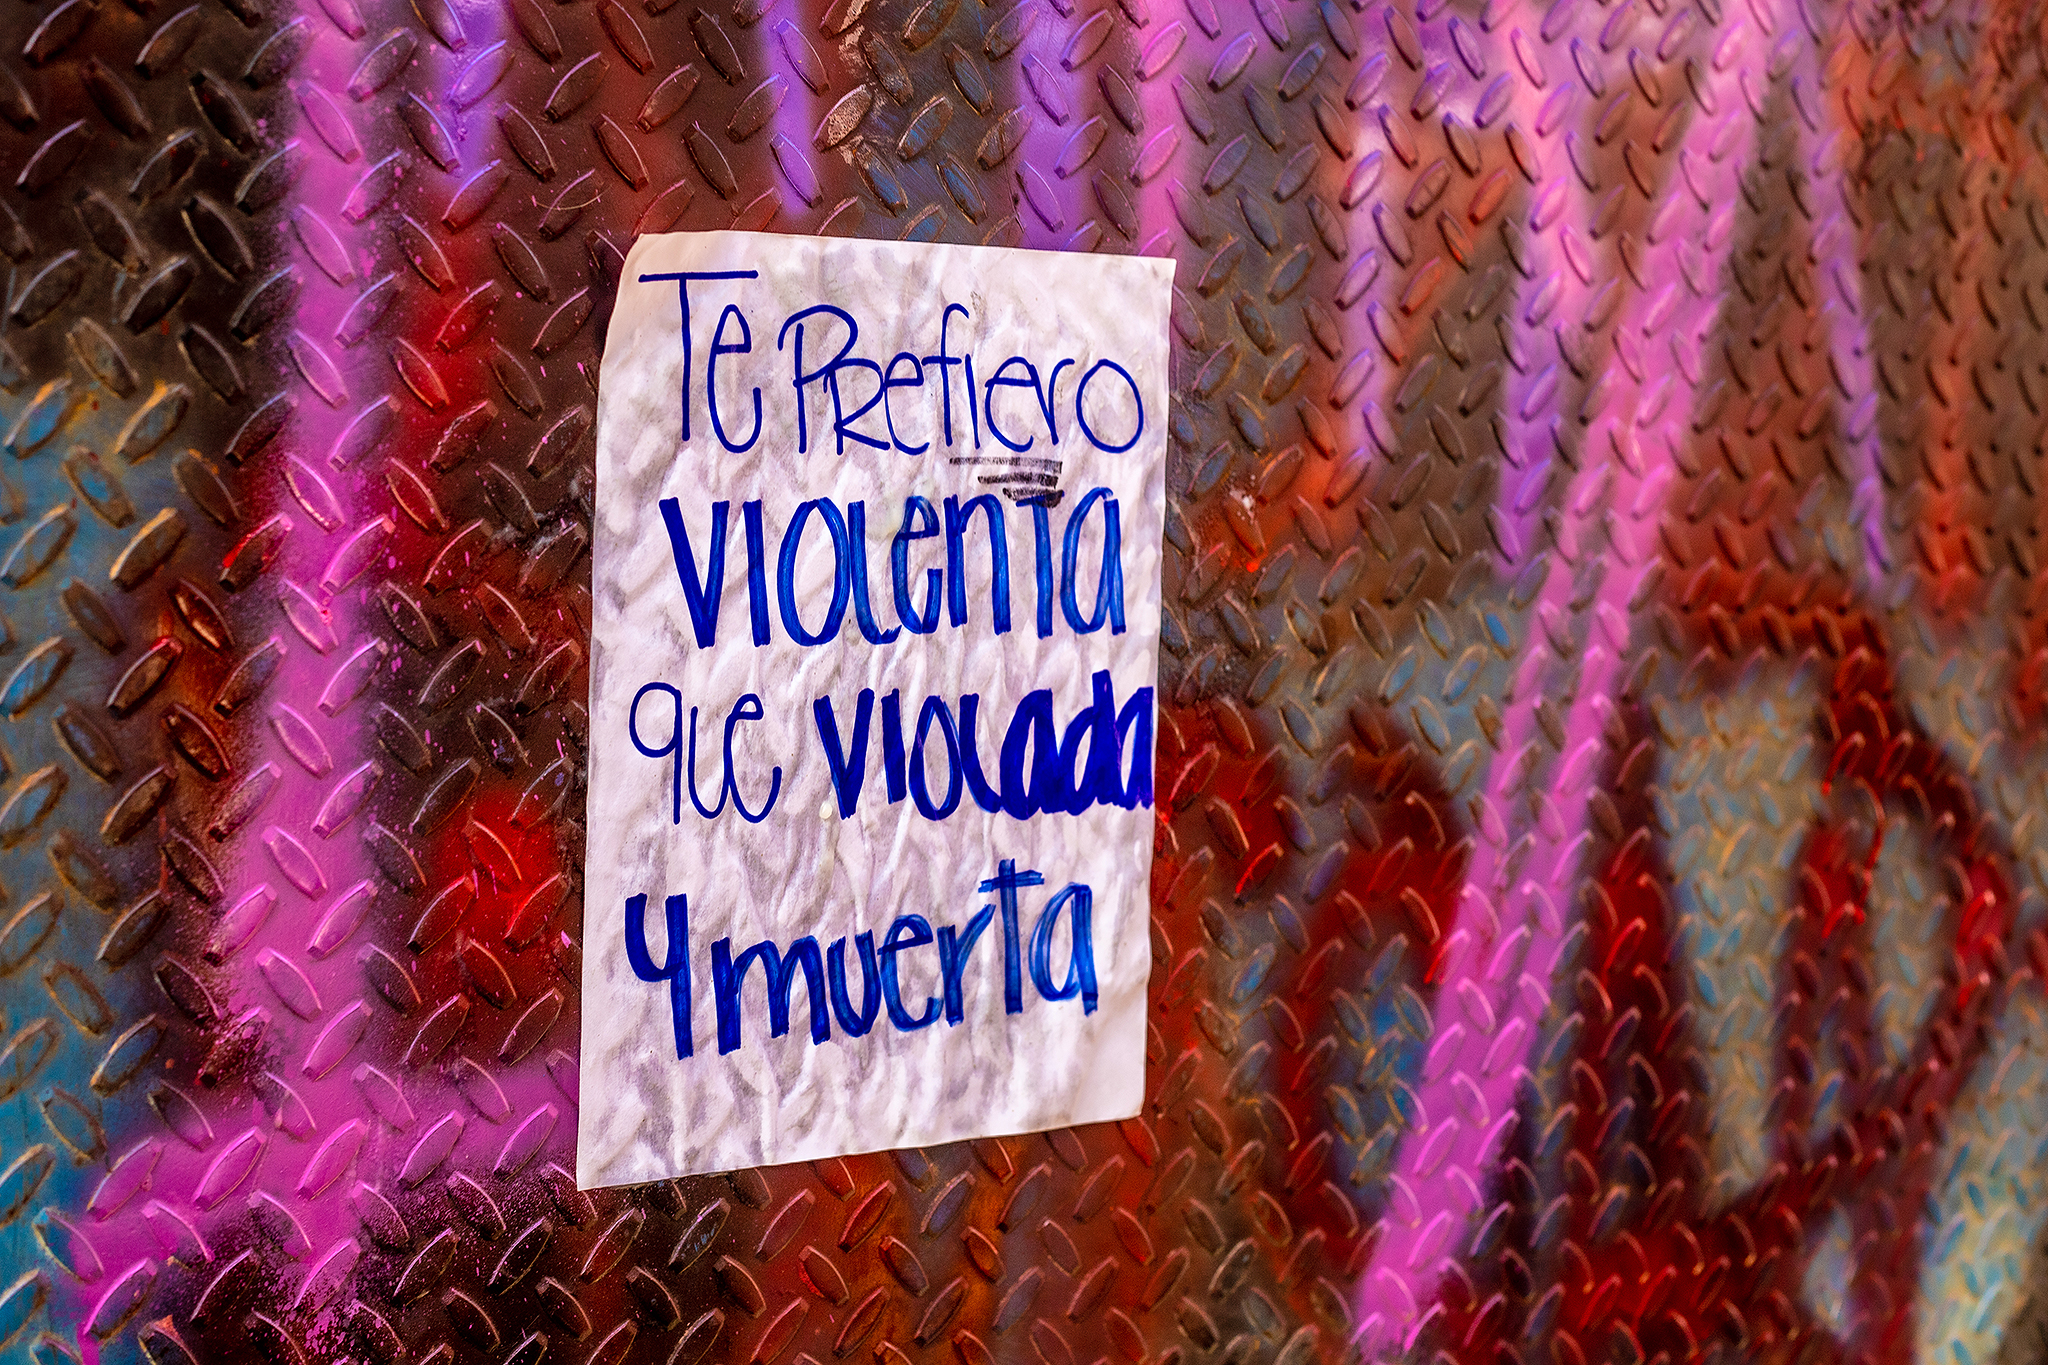 Te PRefiero
violenta
que violada
y muerta